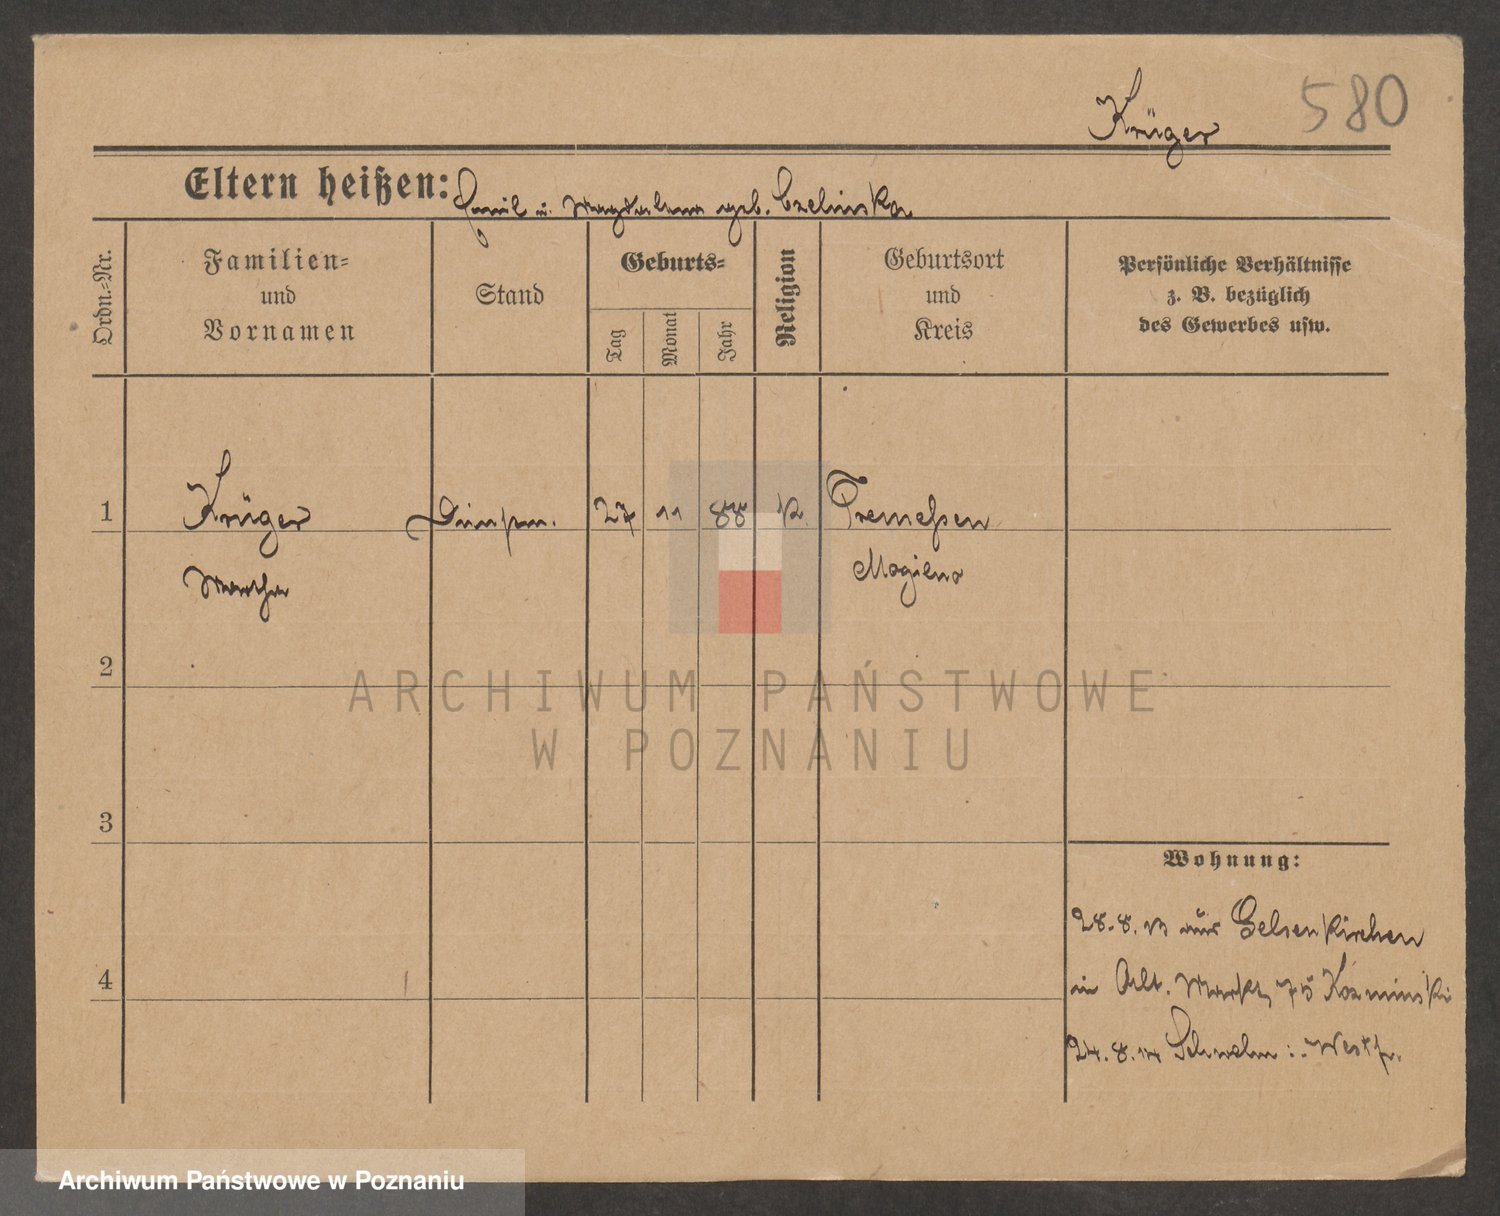 Krüger 580
Eltern heißen: Emil u. Magdalena geb. Czelinska
Ordn.-Nr.
Familien=
und
Vornamen
Stand
Geburts=
Tag
Monat
Jahr
Religion
Geburtsort
und
Kreis
Persönliche Verhältnisse
z. B. bezüglich
des Gewerbes usw.
1 Krüger 27 11 88 k. Tremessen
Martha Mogilno
2
3
4
Wohnung:
28.8.13 aus Gelsenkirchen
in Alt. Markt 75 Kozminski
24.8.14 Schwelm i. Westf.
ARCHIWUM PAŃSTWOWE
W POZNANIU
Archiwum Państwowe w Poznaniu